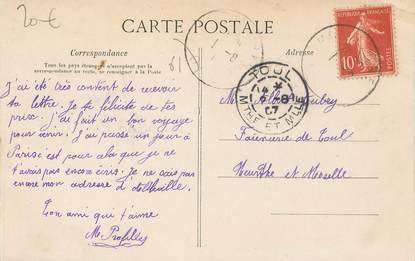 20€
CARTE POSTALE
Correspondance
Tous les pays étrangers n'acceptent pas la
correspondance au recto, se renseigner à la Poste
J'ai été très content de recevoir
ta lettre. Je te félicite de tes
prix. J'ai fait un bon voyage
pour venir. J'ai passé un jour à
Paris c'est pour cela que je
t'avais pas encore écris. Je ne sais pas
encore mon adresse d'Abbeville.
Ton ami qui t'aime
M.
Adresse
RÉPUBLIQUE FRANÇAISE
10
POSTES
TOUL
4 8
07
MTHE ET MLLE
M. Albert Aubry
Faïencerie de Toul
Meurthe et Moselle